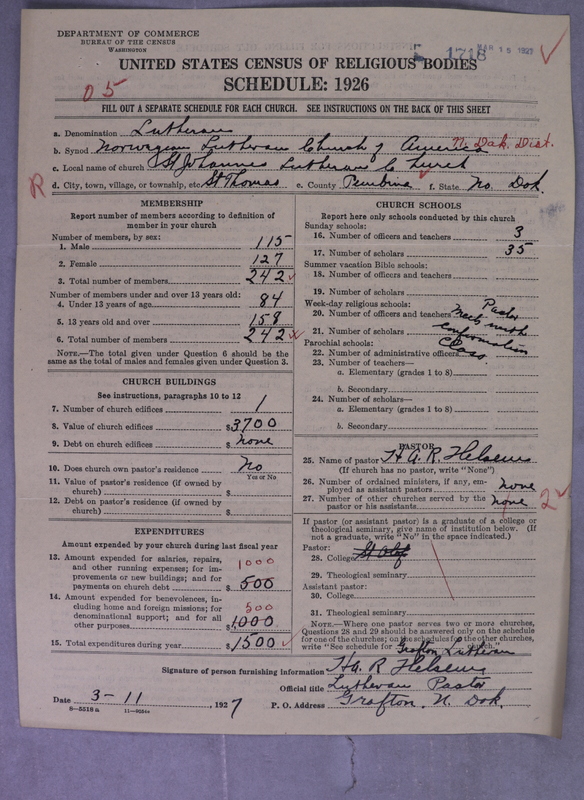 DEPARTMENT OF COMMERCE
BUREAU OF THE CENSUS
WASHINGTON
1718 MAR 15 1927
UNITED STATES CENSUS OF RELIGIOUS BODIES
SCHEDULE: 1926
05
FILL OUT A SEPARATE SCHEDULE FOR EACH CHURCH. SEE INSTRUCTIONS ON THE BACK OF THIS SHEET
a. Denomination Lutheran
b. Synod Norwegian Lutheran Church of America N. Dak. Dist.
c. Local name of church St Johannes Lutheran Church
R d. City, town, village, or township, etc. St Thomas e. County Pembina f. State No. Dok.
MEMBERSHIP
Report number of members according to definition of
member in your church
Number of members, by sex:
1. Male 115
2. Female 127
3. Total number of members 242
Number of members under and over 13 years old:
4. Under 13 years of age 84
5. 13 years old and over 158
6. Total number of members 242
NOTE.—The total given under Question 6 should be the
same as the total of males and females given under Question 3.
CHURCH BUILDINGS
See instructions, paragraphs 10 to 12
7. Number of church edifices 1
8. Value of church edifices $3700
9. Debt on church edifices $none
10. Does church own pastor's residence No
Yes or No
11. Value of pastor's residence (if owned by
church) $
12. Debt on pastor's residence (if owned by
church) $
EXPENDITURES
Amount expended by your church during last fiscal year
13. Amount expended for salaries, repairs,
and other running expenses; for im- 1000
provements or new buildings; and for
payments on church debt $500
14. Amount expended for benevolences, in-
cluding home and foreign missions; for 500
denominational support; and for all
other purposes $1000
15. Total expenditures during year $1500
CHURCH SCHOOLS
Report here only schools conducted by this church
Sunday schools:
16. Number of officers and teachers 3
17. Number of scholars 35
Summer vacation Bible schools:
18. Number of officers and teachers
19. Number of scholars
Week-day religious schools: Pastor
20. Number of officers and teachers meets with
21. Number of scholars confirmation
Parochial schools: Class
22. Number of administrative officers
23. Number of teachers—
a. Elementary (grades 1 to 8)
b. Secondary
24. Number of scholars—
a. Elementary (grades 1 to 8)
b. Secondary
PASTOR
25. Name of pastor H. A. R.
(If church has no pastor, write "None")
26. Number of ordained ministers, if any, em-
ployed as assistant pastors none
27. Number of other churches served by the
pastor or his assistants none 2
If pastor (or assistant pastor) is a graduate of a college or
theological seminary, give name of institution below. (If
not a graduate, write "No" in the space indicated.)
Pastor:
28. College St Olaf
29. Theological seminary
Assistant pastor:
30. College
31. Theological seminary
NOTE.—Where one pastor serves two or more churches,
Questions 28 and 29 should be answered only on the schedule
for one of the churches; on the schedules for the other churches,
write "See schedule for Grafton Lutheran church."
Signature of person furnishing information H. A. R.
Official title Lutheran Pastor
Date 3-11, 1927 P. O. Address Grafton, N. Dok.
8—5518 a 11—9204a